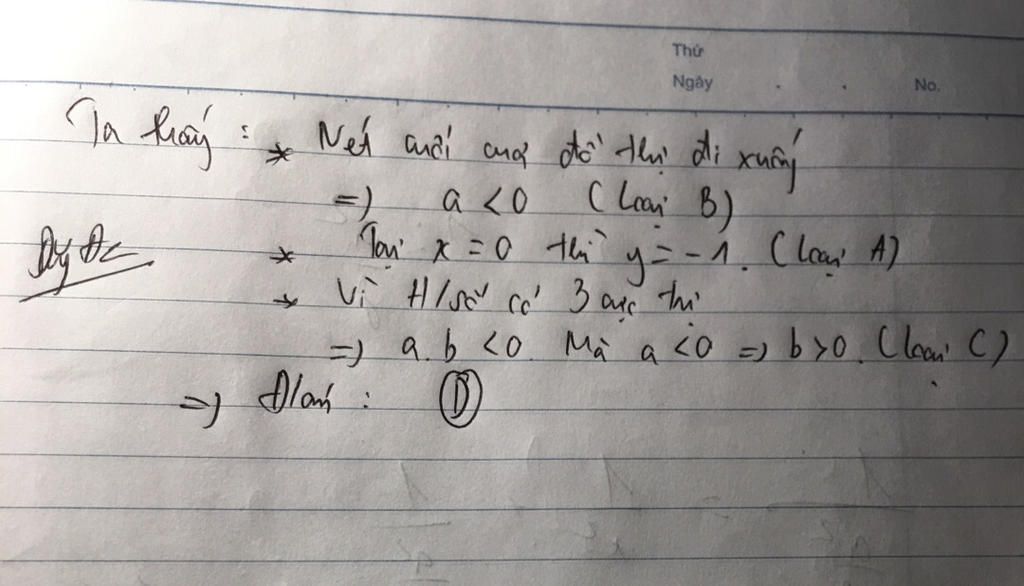 Thứ
Ngày . . No.
Ta thấy : * Nét cuối của đồ thị đi xuống
=> a < 0 (Loại B)
* Tại x = 0 thì y = -1. (Loại A)
* Vì H/số có 3 cực trị
=> a.b < 0. Mà a < 0 => b > 0. (Loại C)
=> Đ/án : D